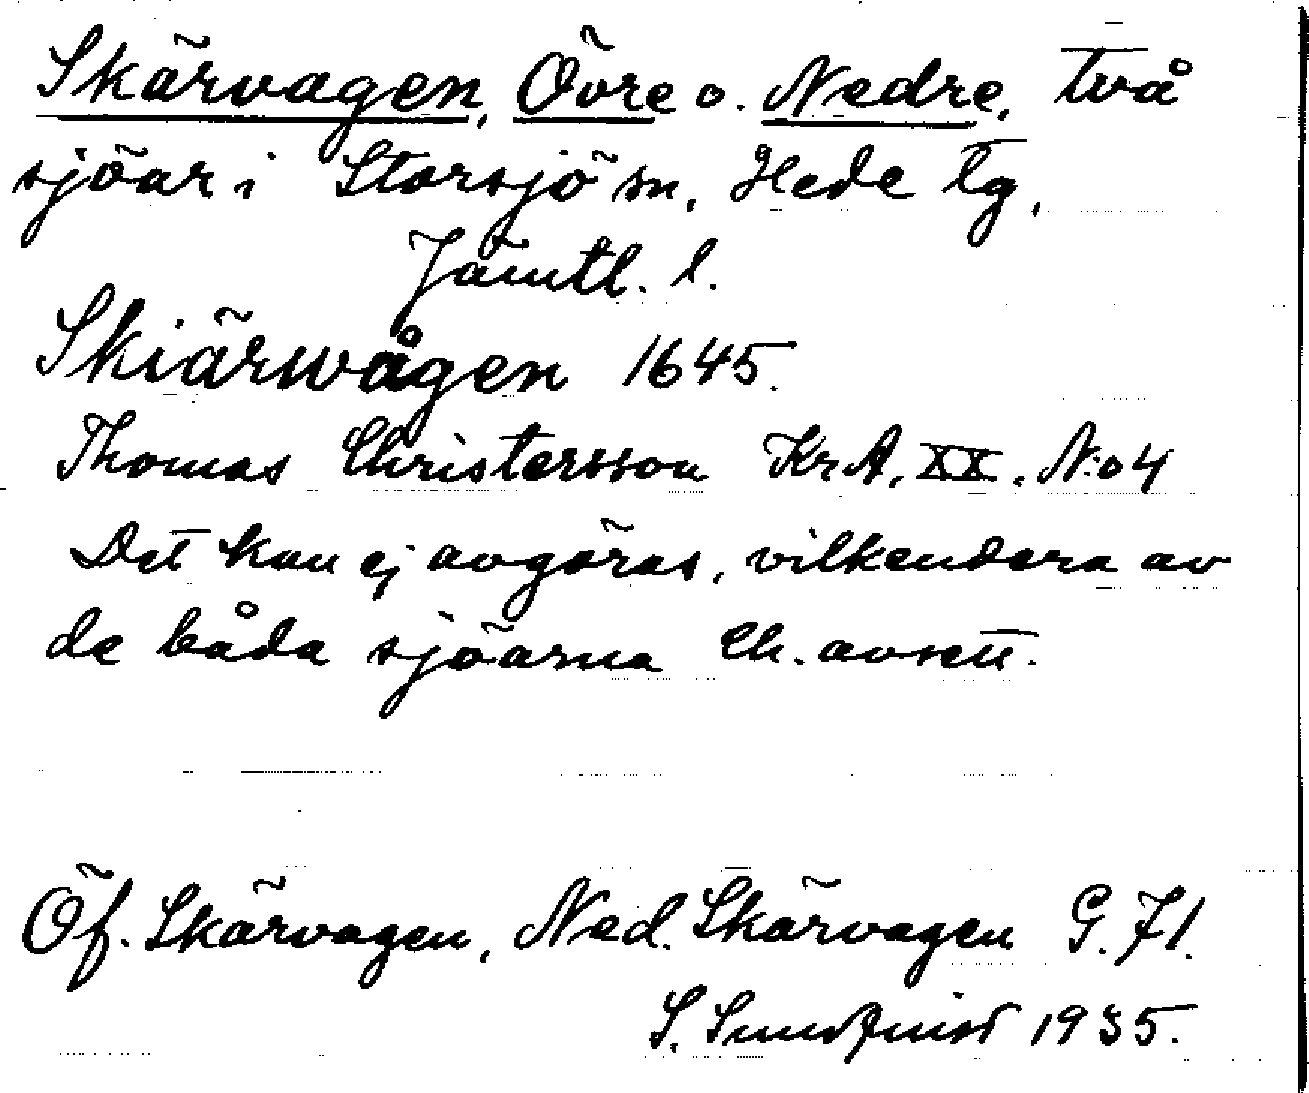 Skärvagen, Övre o. Nedre, två
sjöar i Storsjö sn, Hede tg,
Jämtl. l.
Skiärwågen 1645.
Thomas Christersson Kr A, XX, N:o 4
Det kan ej avgöras, vilkendera av
de båda sjöarna Ch. avsett.
Öf. Skärvagen, Ned. Skärvagen G. 71.
S. Sundquist 1935.